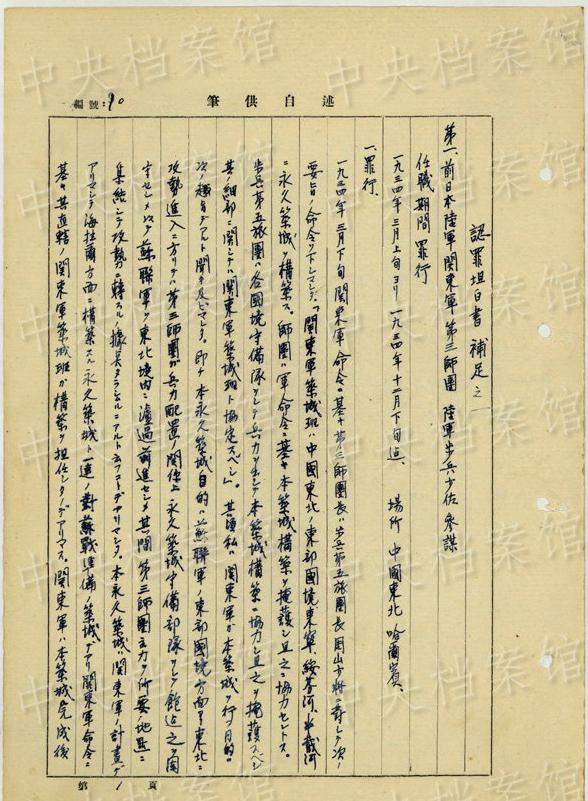 中央档案馆
筆供自述
編號：90
認罪坦白書 補足之一
第一、前日本陸軍関東軍第三師團 陸軍歩兵少佐 参謀
任職期間罪行
一九三四年三月上旬ヨリ一九三四年十二月下旬迠、 場所 中國東北 哈爾賓、
一、罪行、
一九三四年三月下旬関東軍命令ニ基キ第三師團長ハ歩兵第五旅團長 少将ニ対シテ次ノ
要旨ノ命令ヲ下シマシタ。「関東軍築城班ハ中國東北ノ東部國境東寧、綏芬河、半截河
ニ永久築城ヲ構築ス。師團ハ軍命令ニ基キ本築城構築ヲ掩護シ且之ニ協力セントス。
歩兵第五旅團ハ各國境守備隊ヲシテ兵力ヲ出シテ本築城構築ニ協力シ且之ヲ掩護スベシ
其ノ細部ニ関シテハ関東軍築城班ト協定スベシ」。 其頃私ハ関東軍ガ本築城ヲ行フ目的ハ
次ノ趣旨デアルト聞キ及ビマシタ。即チ本永久築城ノ目的ハ蘇聯軍ノ東部國境方面ヨリ東北ニ
攻勢進入ニ方リテハ第三師團ガ兵力配置ノ関係上永久築城守備部隊ヲシテ飽迠之ヲ固
守セシメ以テ蘇聯軍ヲ東北境内ニ 過前進セシメ其ノ間第三師團主力ヲ所要ノ地点ニ
集結シテ攻勢ニ轉スル據点タラシムルニアルト云フコトデアリマシタ。本永久築城ハ関東軍ノ計畫デ
アリマシテ海拉爾方面ニ構築スル永久築城ト一連ノ對蘇戦準備ノ築城デアリ関東軍命令ニ
基キ其直轄ノ関東軍築城班ガ構築ヲ担任シタノデアリマス。関東軍ハ本築城完成後
第 頁